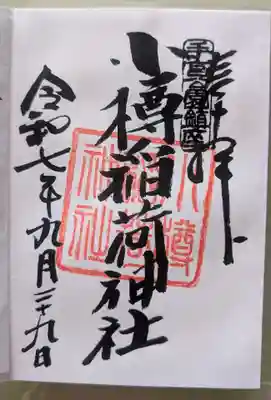 奉拝
手宮公園鎮座
小樽稲荷神社
小樽稲荷神社
令和七年九月二十九日